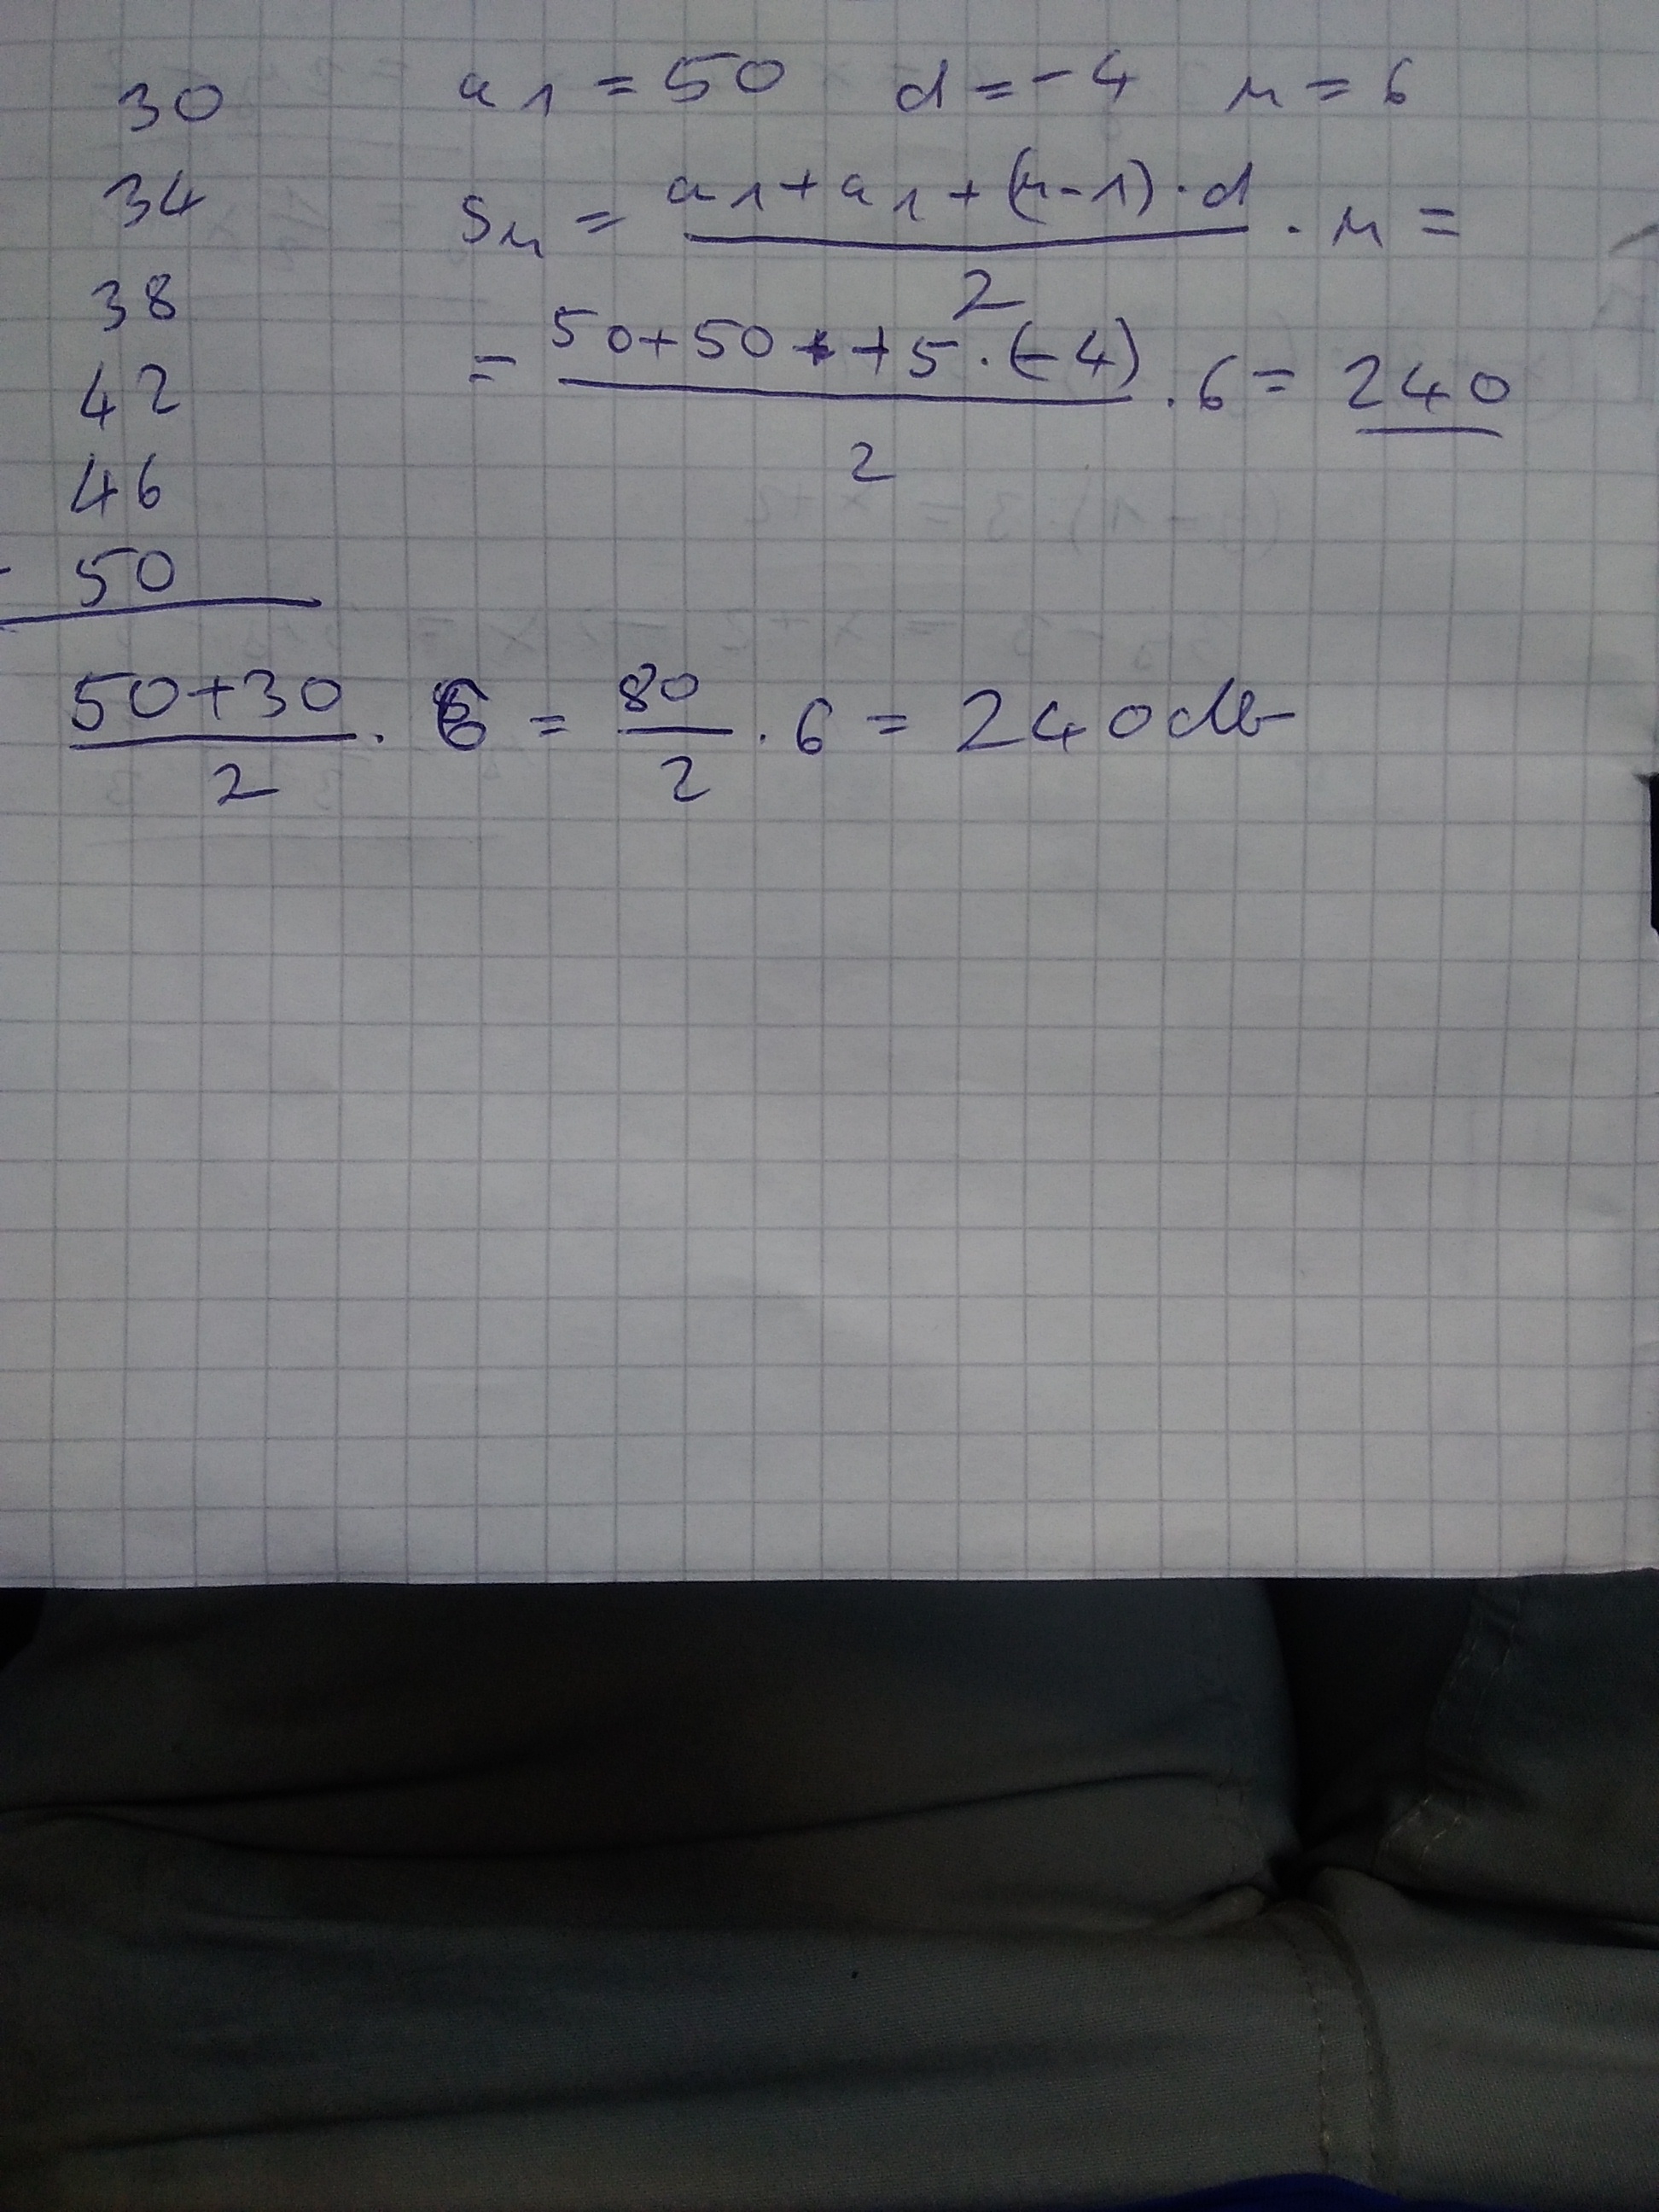 30
34
38
42
46
50
a1 = 50 d = -4 n = 6
Sn = (a1 + a1 + (n-1) · d) / 2 · n =
= (50 + 50 + 5 · (-4)) / 2 · 6 = 240
(50+30) / 2 · 6 = 80 / 2 · 6 = 240 db